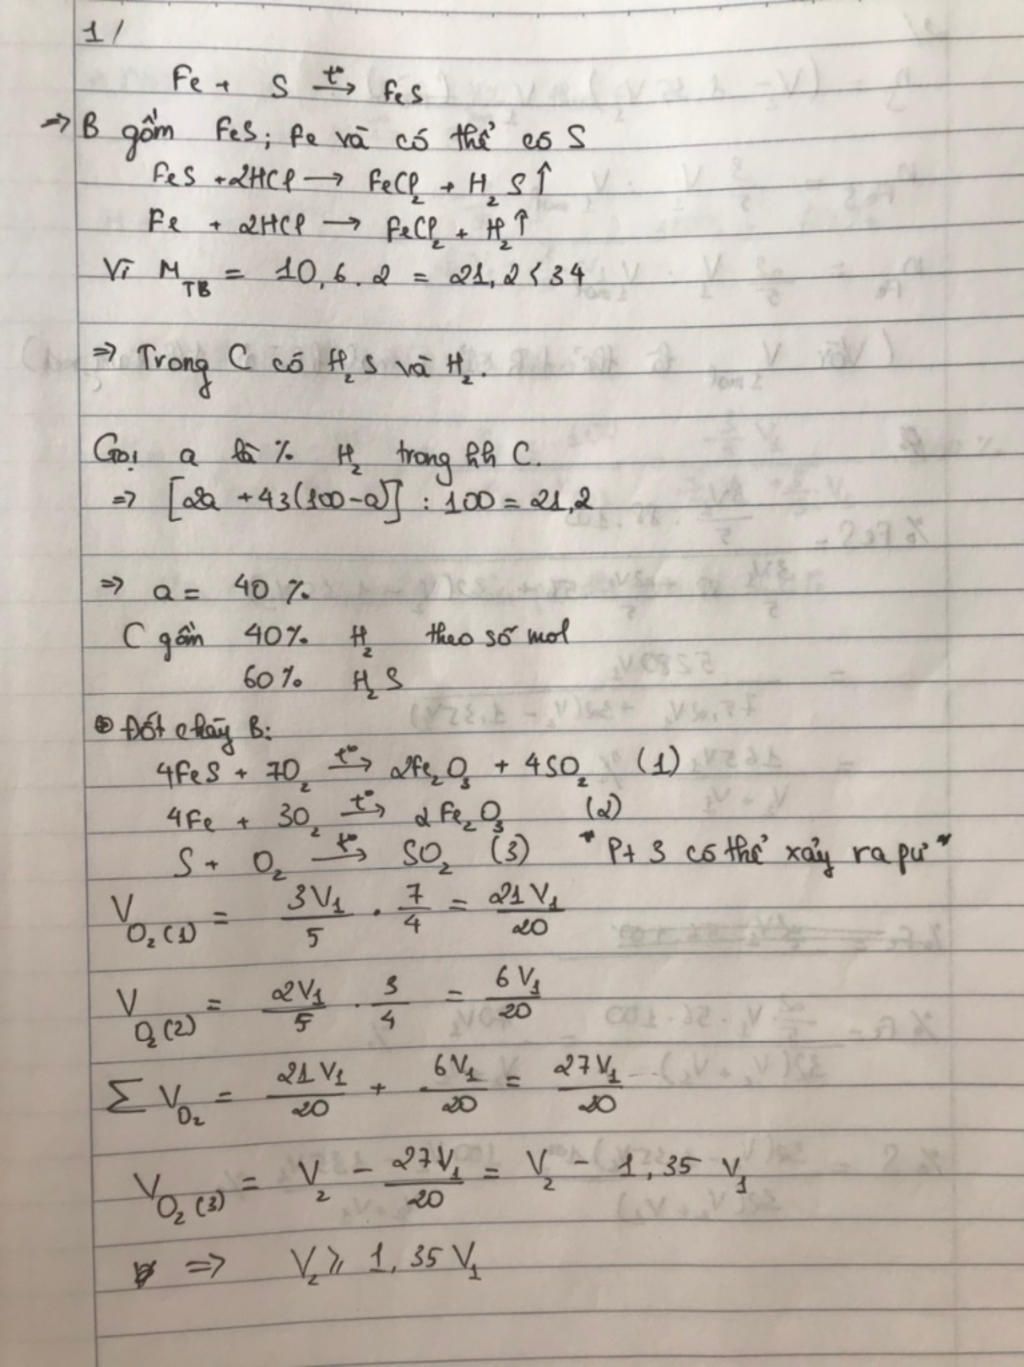 1/
Fe + S t°→ FeS
⇒ B gồm FeS; Fe và có thể có S
FeS + 2HCl → FeCl₂ + H₂S↑
Fe + 2HCl → FeCl₂ + H₂↑
Vì M_TB = 10,6.2 = 21,2 < 34
⇒ Trong C có H₂S và H₂.
Gọi a là % H₂ trong hh C.
⇒ [2a + 43(100-a)] : 100 = 21,2
⇒ a = 40 %
C gồm 40% H₂ theo số mol
60% H₂S
Đốt cháy B:
4FeS + 7O₂ t°→ 2Fe₂O₃ + 4SO₂ (1)
4Fe + 3O₂ t°→ 2Fe₂O₃ (2)
S + O₂ t°→ SO₂ (3) * Pt 3 có thể xảy ra pư *
V_O₂(1) = 3V₁/5 . 7/4 = 21V₁/20
V_O₂(2) = 2V₁/5 . 3/4 = 6V₁/20
Σ V_O₂ = 21V₁/20 + 6V₁/20 = 27V₁/20
V_O₂(3) = V₂ - 27V₁/20 = V₂ - 1,35 V₁
⇒ V₂ ⩾ 1,35 V₁